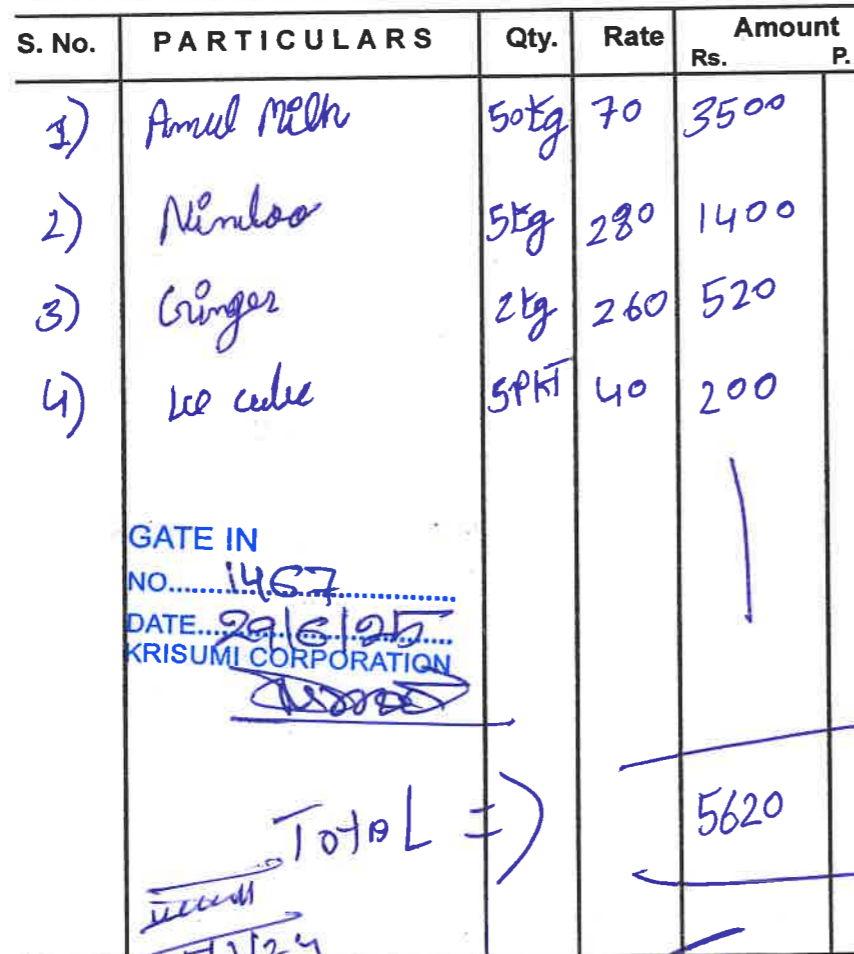 S. No. PARTICULARS Qty. Rate Amount
Rs. P.
1) Amul Milk 50kg 70 3500
2) Nimboo 5kg 280 1400
3) Ginger 2kg 260 520
4) Ice cube 5PKT 40 200
GATE IN
NO.....1467..............................
DATE...29/6/25...................
KRISUMI CORPORATION
Total => 5620